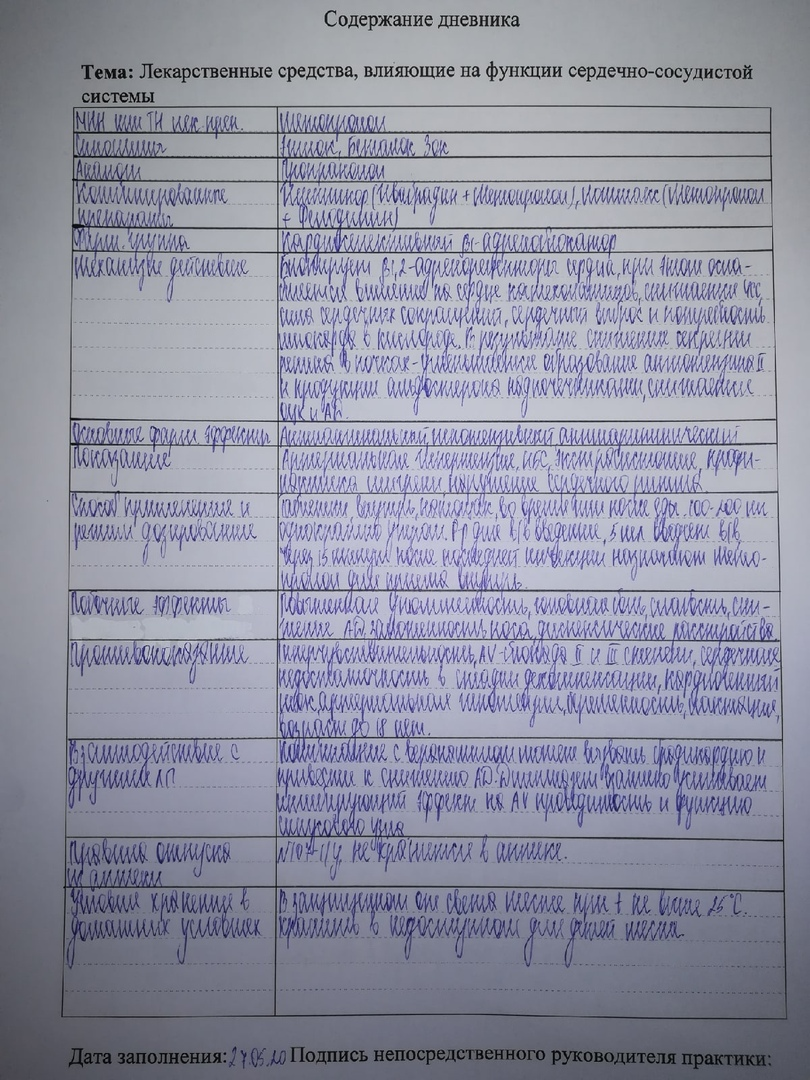 Содержание дневника
Тема: Лекарственные средства, влияющие на функции сердечно-сосудистой
системы
МНН или ТН лек. преп.
Метопролол
Синонимы
Эгилок, Беталок Зок
Аналоги
Пропранолол
Комбинированные
препараты
Импликор (Ивабрадин + Метопролол), (Метопролол
+ Фелодипин)
Фарм. группа
Кардиоселективный β1-адреноблокатор
Механизм действие
Блокирует β1,2-адренорецепторы сердца, при этом осла-
бляется влияние на сердце катехоламинов, снижается ЧСС,
сила сердечных сокращений, сердечный выброс и потребность
миокарда в кислороде. В результате снижения секреции
ренина в почках - уменьшается образование ангиотензина II
и продукции альдостерона надпочечниками, снижается
ОЦК и АД.
Основные фарм. эффекты
Антиангинальный, гипотензивный, антиаритмический
Показание
Артериальная гипертензия, ИБС, Экстрасистолия, профи-
лактика мигрени, нарушение сердечного ритма.
Способ применения и
режим дозирование
Таблетки внутрь, натощак, во время или после еды. 100-200 мг
однократно утром. Р-р для в/в введение, 5 мл вводят в/в
через 15 минут после последней инъекции назначают Мето-
пролол для приема внутрь.
Побочные эффекты
Повышенная утомляемость, головная боль, слабость, сни-
жение АД, заложенность носа, диспепсические расстройства.
Противопоказание
Гиперчувствительность, AV-блокада II и III степени, сердечная
недостаточность в стадии декомпенсации, кардиогенный
шок, артериальная гипотензия, беременность, лактация,
возраст до 18 лет.
Взаимодействие с
другими ЛП
с верапамилом может вызвать брадикардию и
привести к снижению АД. Дилтиазем взаимно усиливает
ингибирующий эффект на AV проводимость и функцию
синусового узла
Правила отпуска
из аптеки
№107-1/у. не хранится в аптеке.
Условие хранение в
домашних условиях
В защищенном от света месте при t не выше 25°C.
хранить в недоступном для детей месте.
Дата заполнения: 27.05.20 Подпись непосредственного руководителя практики: